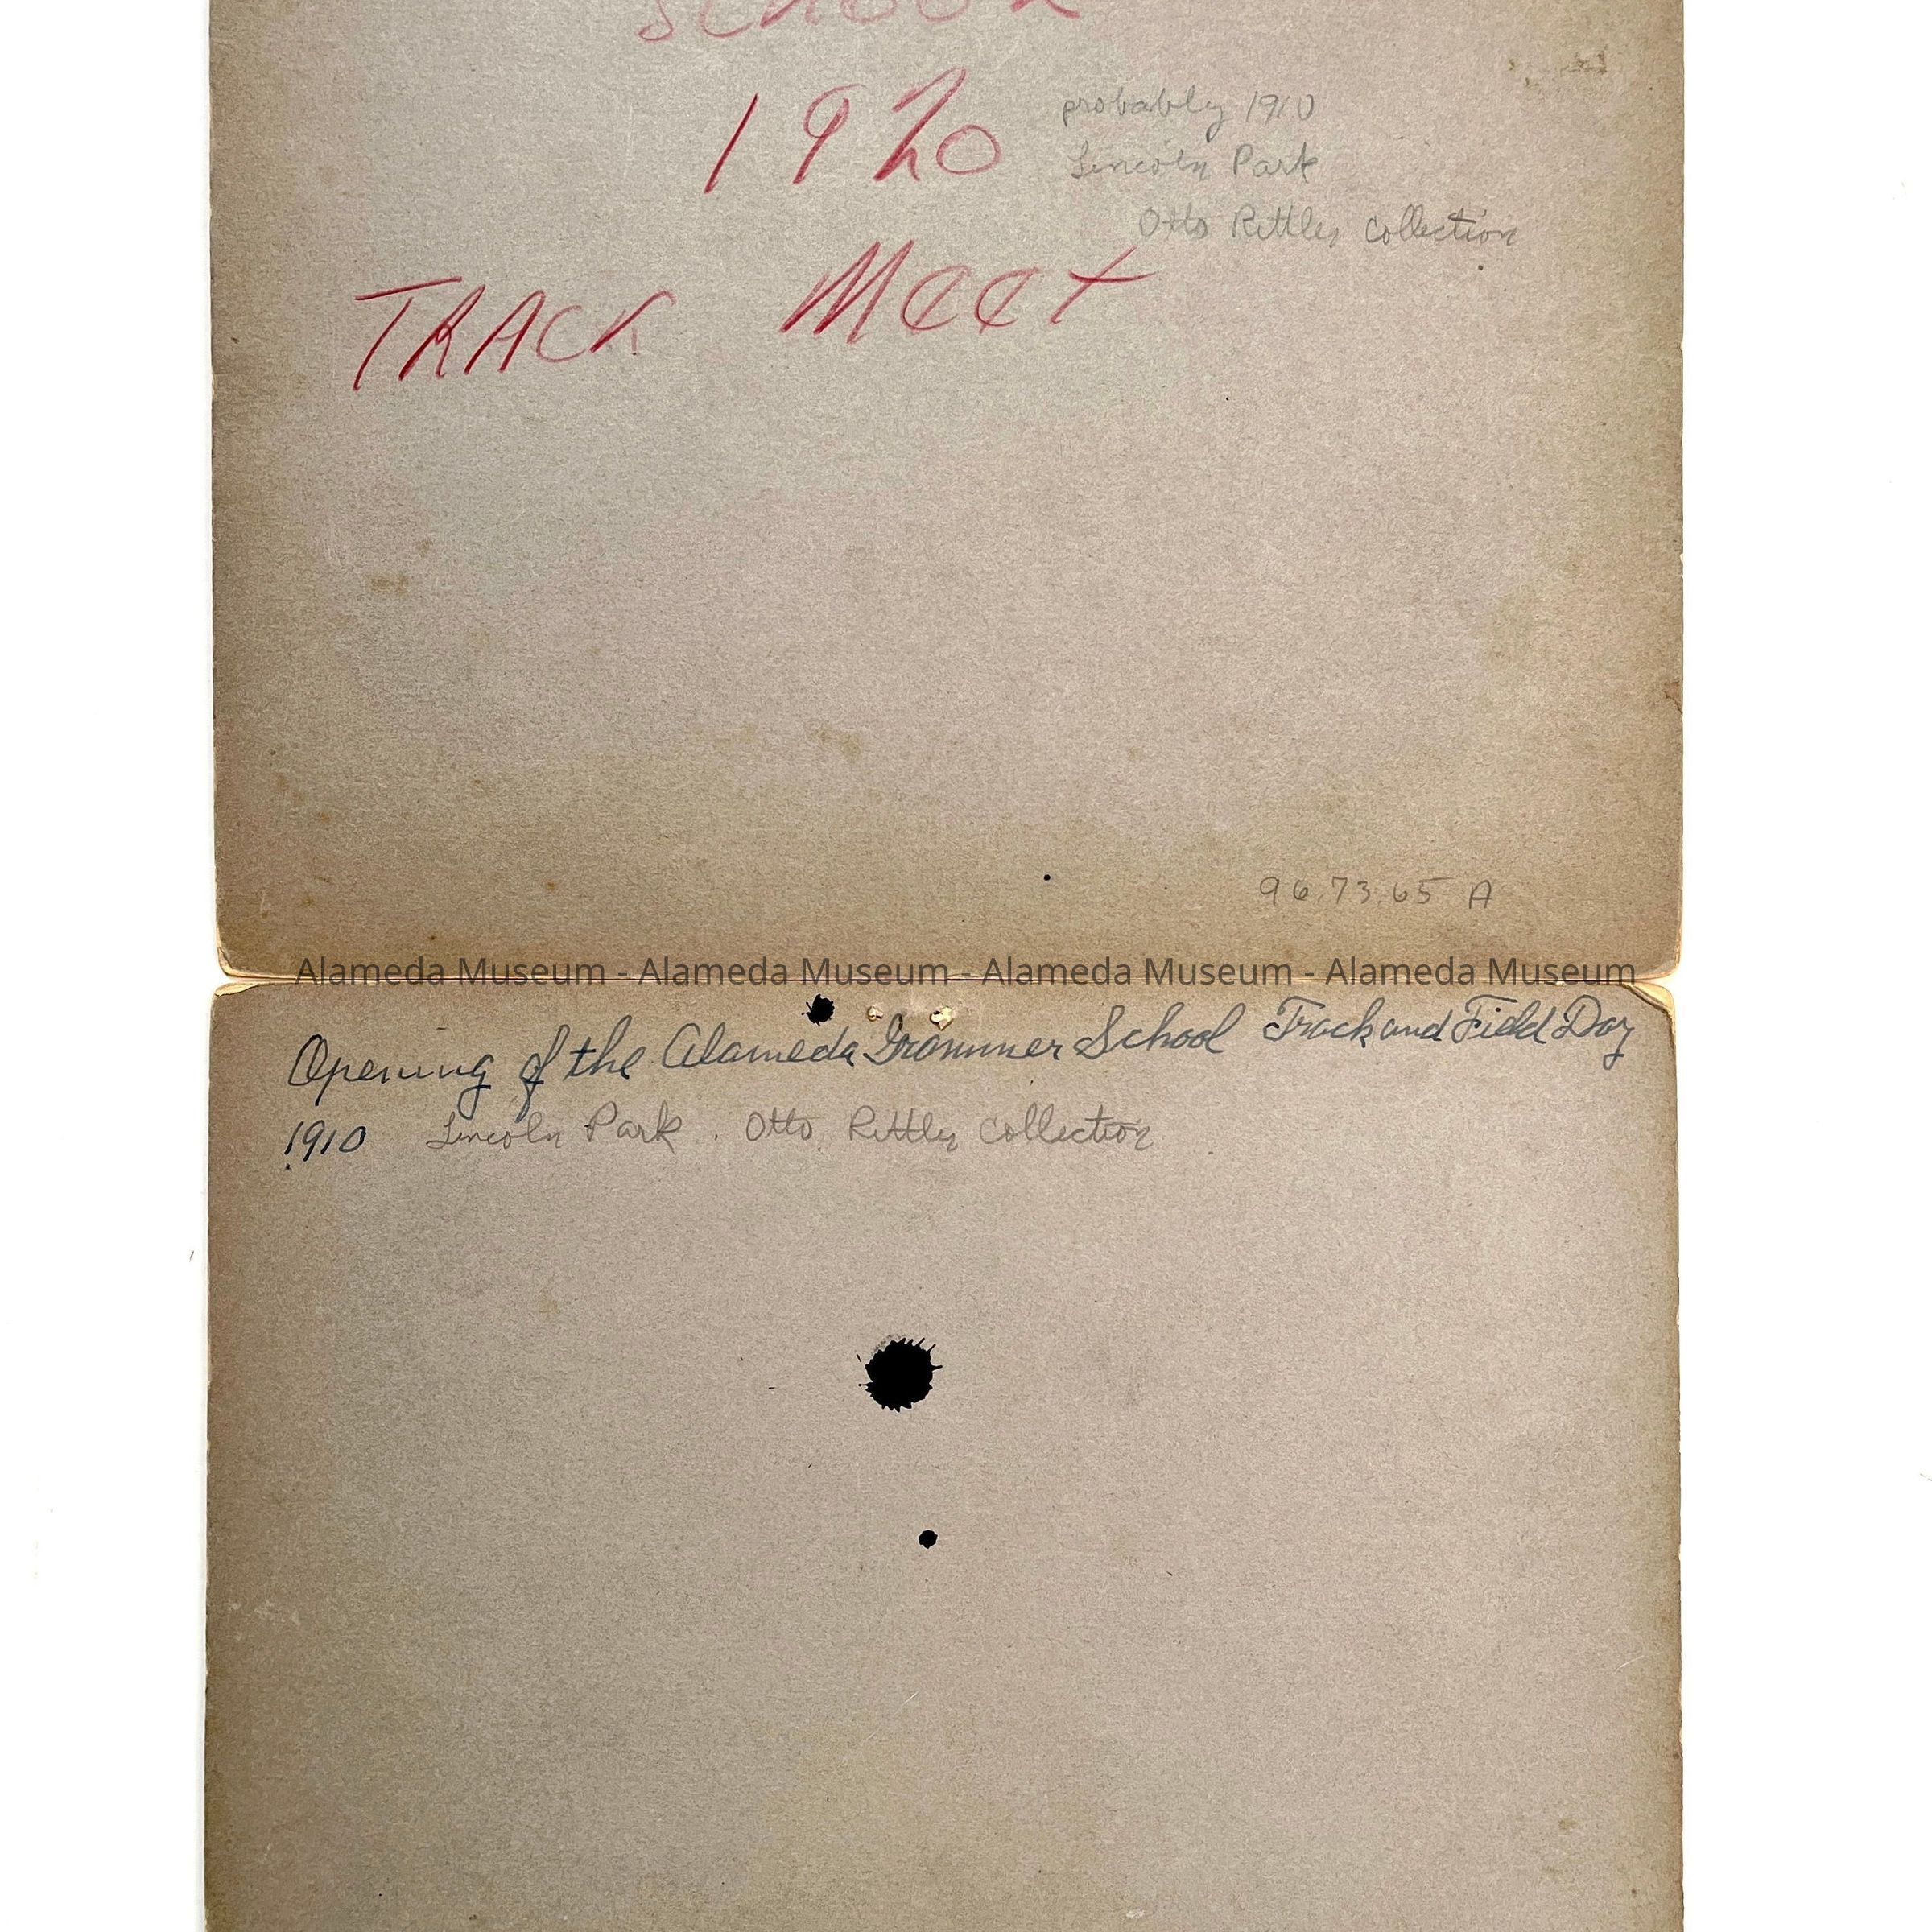 SCHOOL
1920
probably 1910
Lincoln Park
Otto Rittler collection
TRACK MEET
96.73.65 A
Alameda Museum - Alameda Museum - Alameda Museum - Alameda Museum
Opening of the Alameda Grammer School Track and Field Day
1910 Lincoln Park. Otto Rittler collection